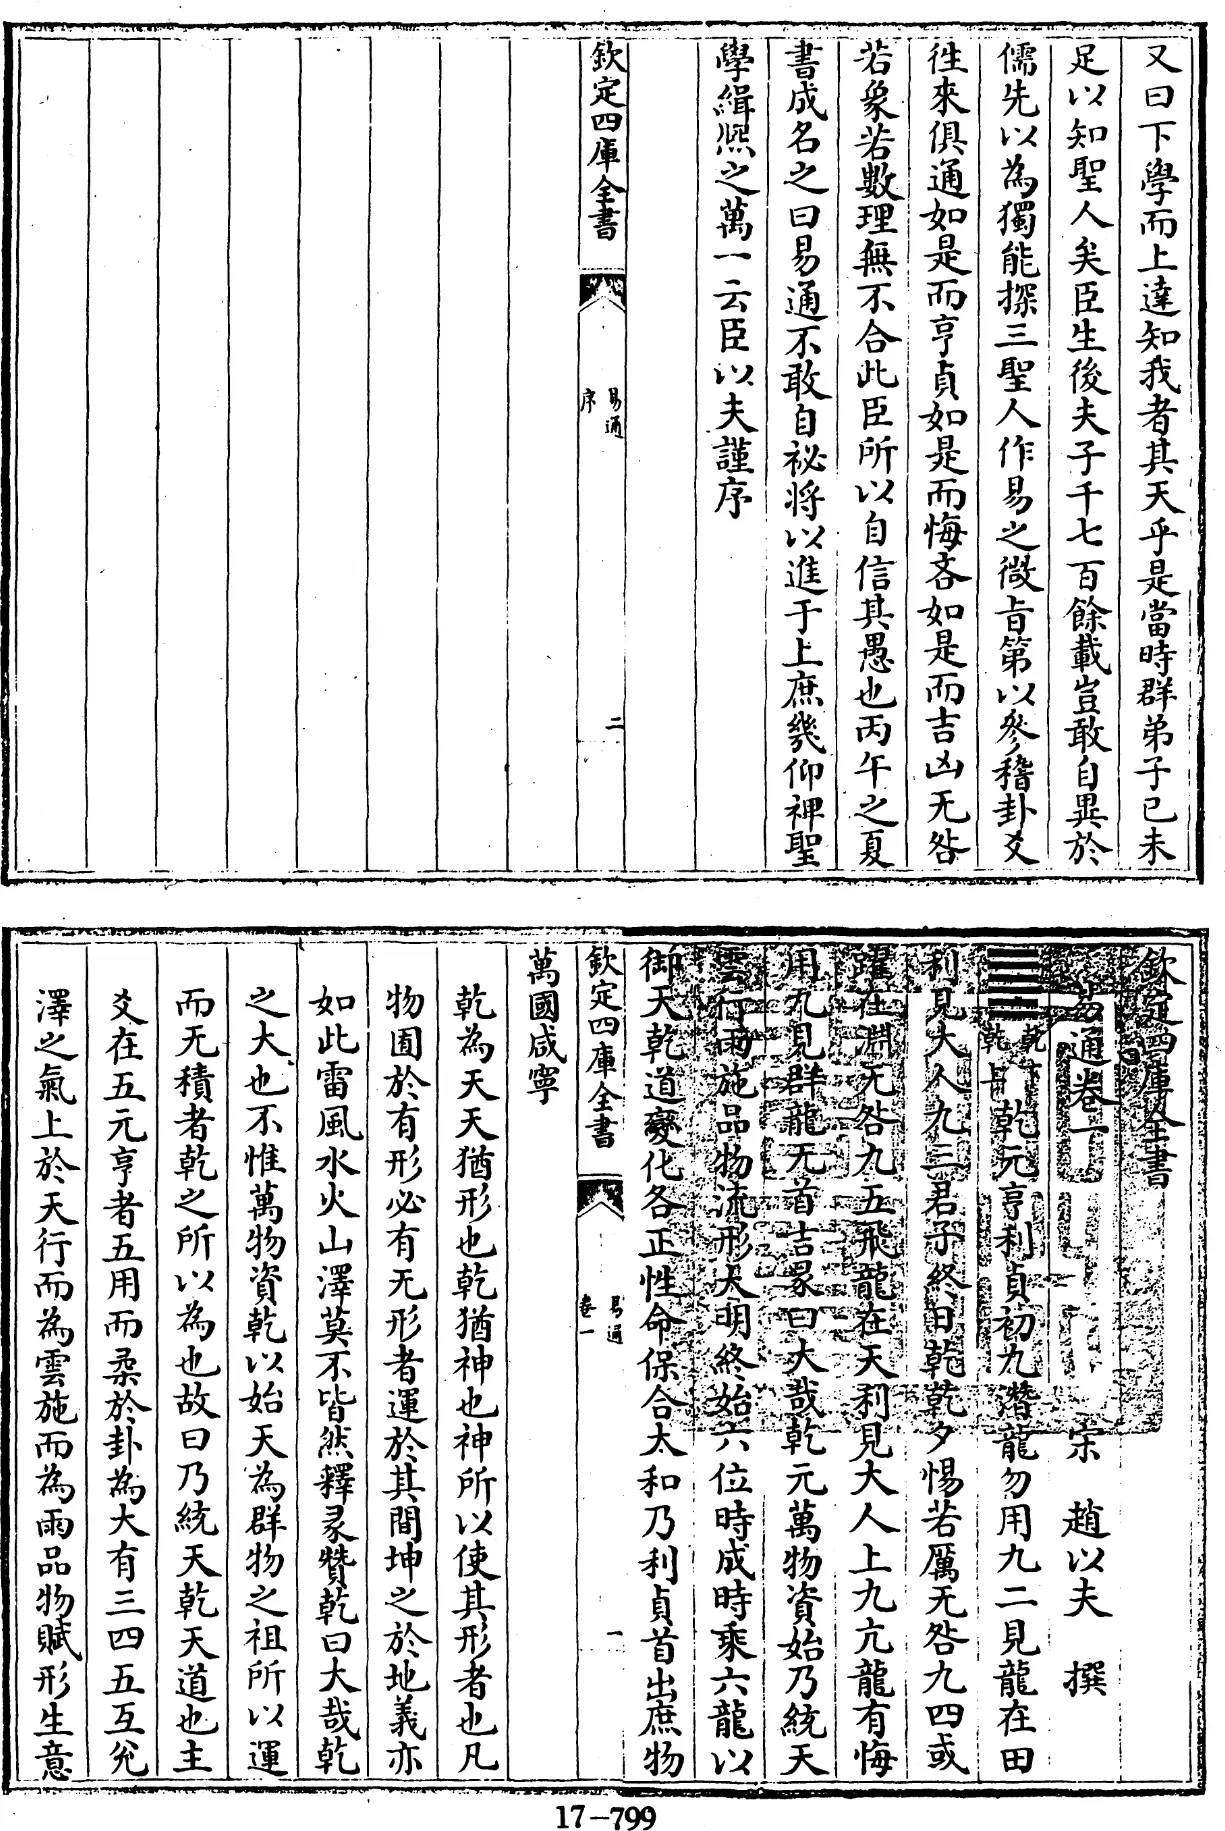 又曰下學而上達知我者其天乎是當時群弟子已未
足以知聖人矣臣生後夫子千七百餘載豈敢自異於
儒先以為獨能探三聖人作易之微旨第以參稽卦爻
徃來俱通如是而亨貞如是而悔吝如是而吉凶无咎
若象若數理無不合此臣所以自信其愚也丙午之夏
書成名之曰易通不敢自祕将以進于上庶㡬仰裨聖
學緝熙之萬一云臣以夫謹序
欽定四庫全書
易通
序
二
欽定四庫全書
易通卷一
宋 趙以夫 撰
䷀
乾下
乾上
乾元亨利貞初九潛龍勿用九二見龍在田
利見大人九三君子終日乾乾夕惕若厲无咎九四或
躍在淵无咎九五飛龍在天利見大人上九亢龍有悔
用九見群龍无首吉彖曰大哉乾元萬物資始乃統天
雲行雨施品物流形大明終始六位時成時乘六龍以
御天乾道變化各正性命保合太和乃利貞首出庶物
欽定四庫全書
易通
卷一
一
萬國咸寧
乾為天天猶形也乾猶神也神所以使其形者也凡
物囿於有形必有无形者運於其間坤之於地義亦
如此雷風水火山澤莫不皆然釋彖贊乾曰大哉乾
之大也不惟萬物資乾以始天為群物之祖所以運
而无積者乾之所以為也故曰乃統天乾天道也主
爻在五元亨者五用而柔於卦為大有三四五互兊
澤之氣上於天行而為雲施而為雨品物賦形生意
17-799